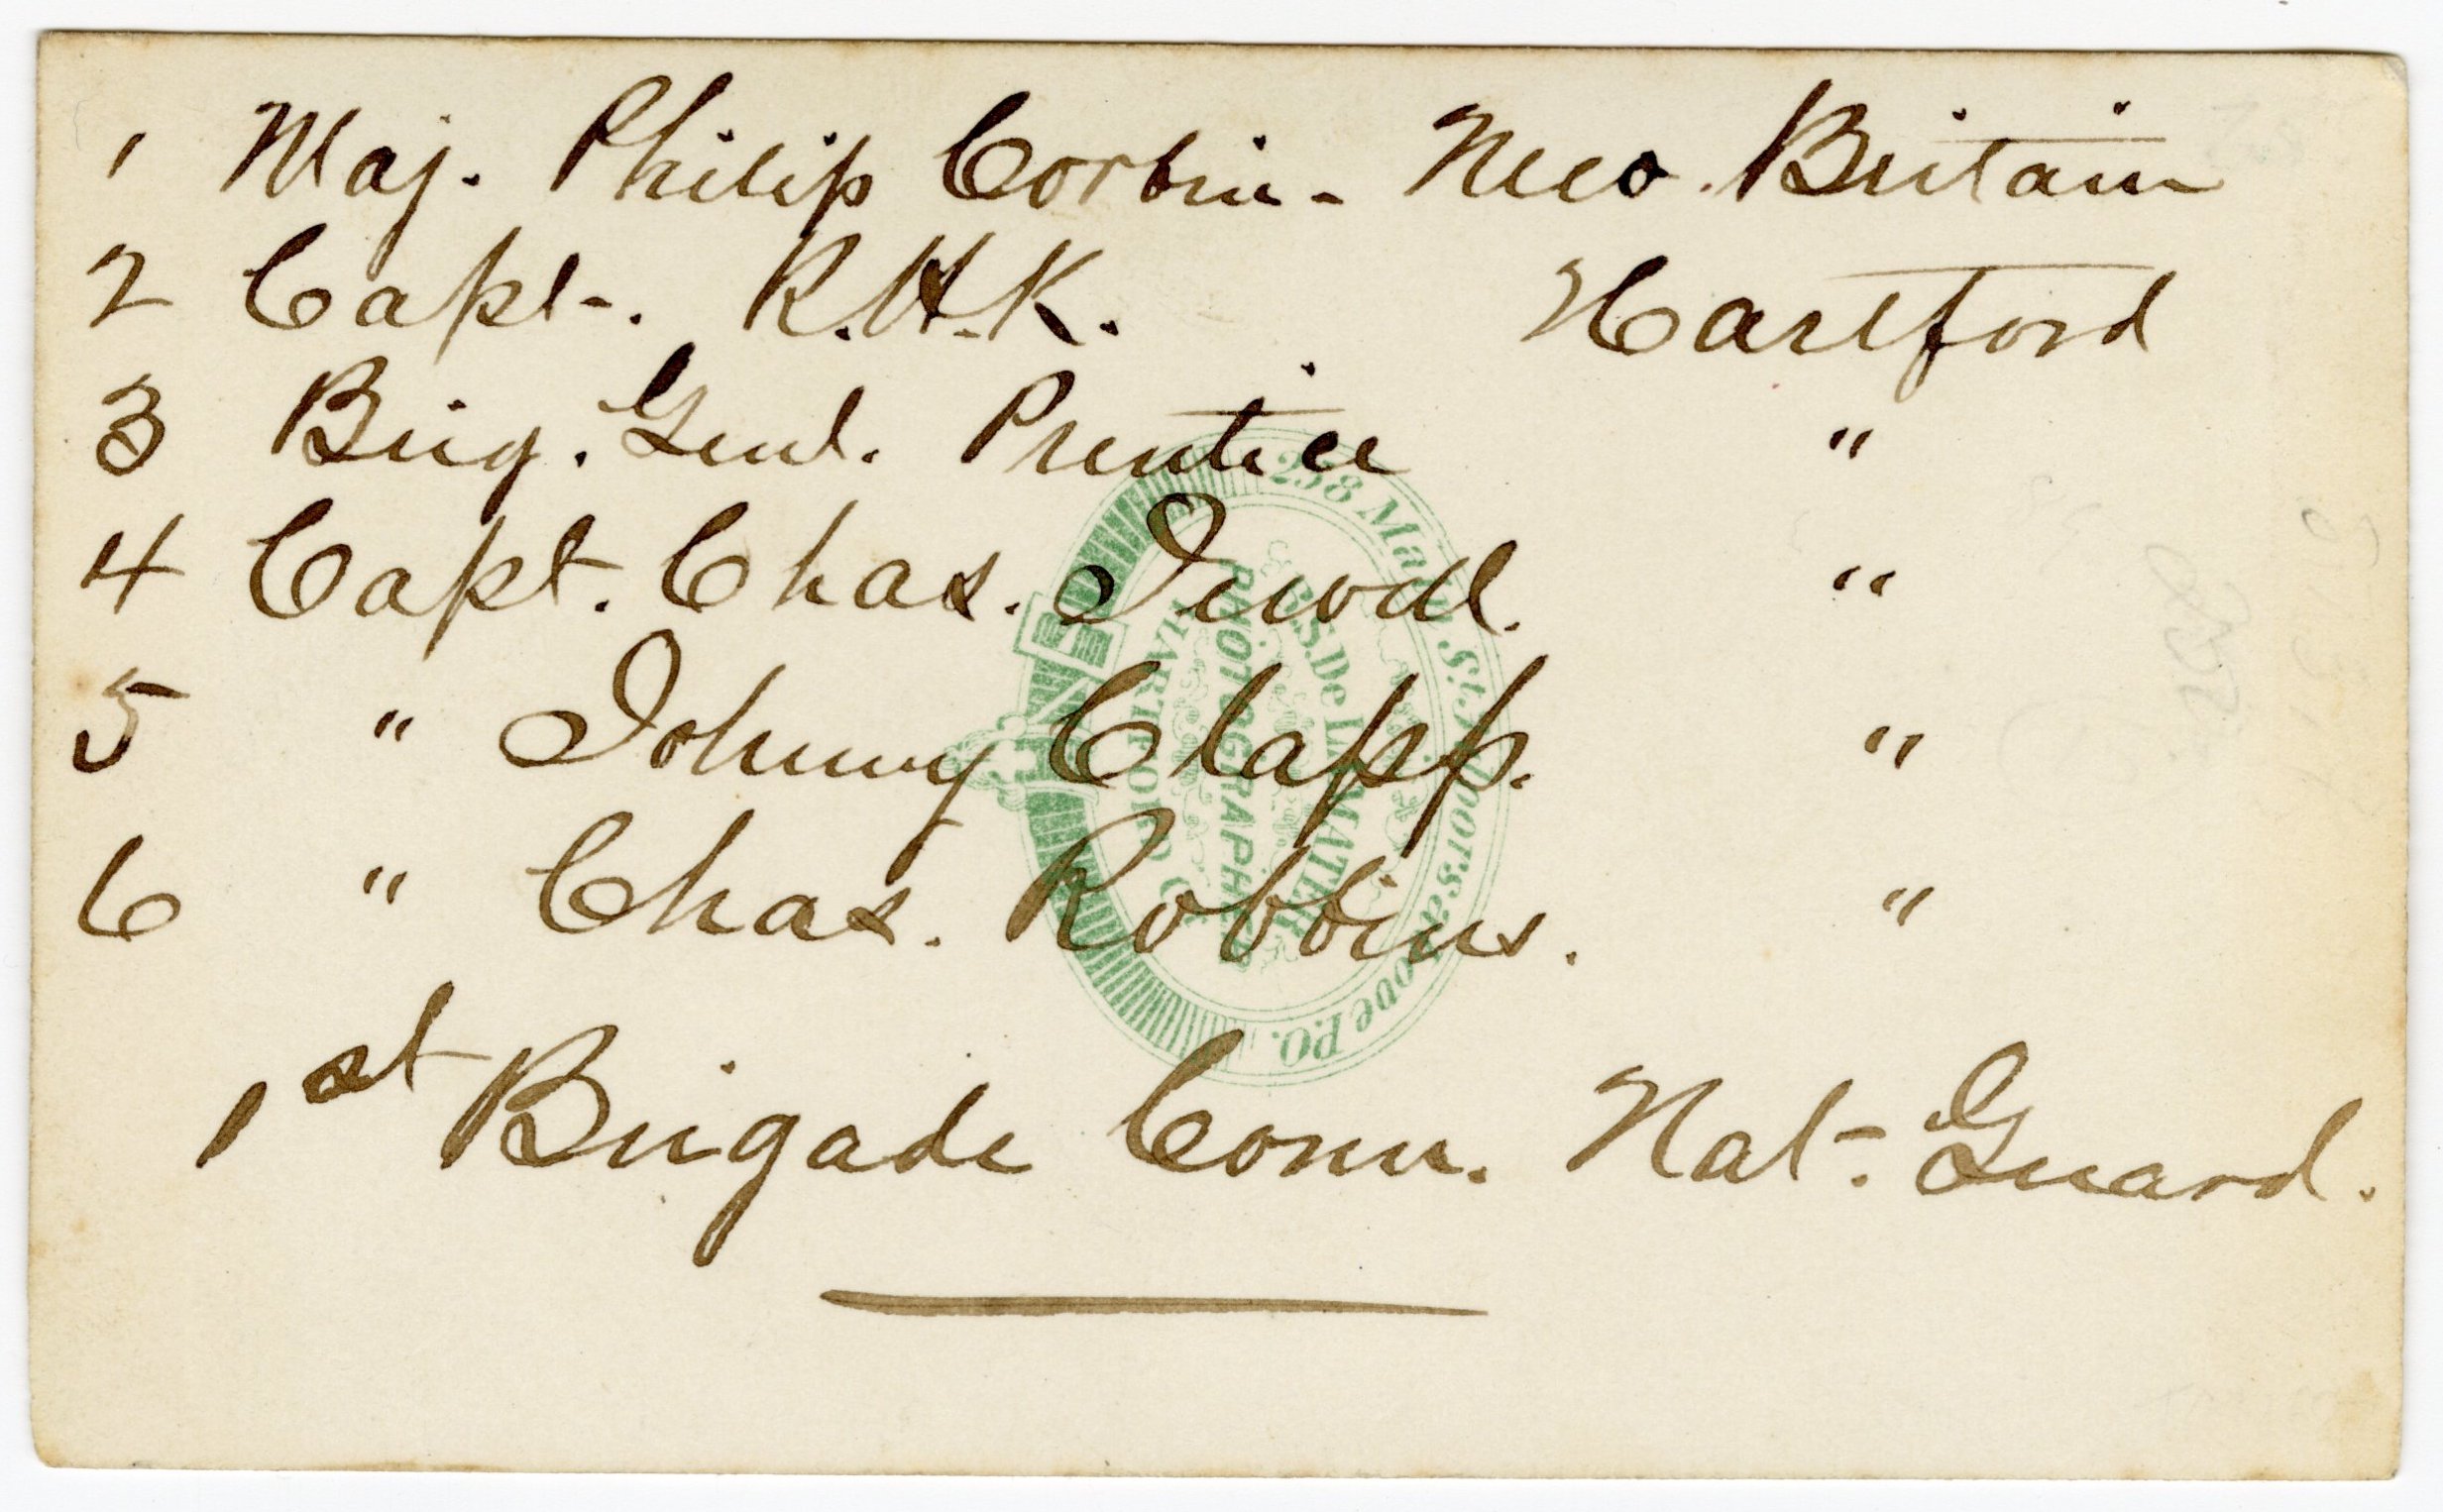 1 Maj. Philip Corbin - New Britain
2 Capt. R.H.K. Hartford
3 Brig. Genl. Prentice "
4 Capt. Chas. "
5 " Johnny Clapp. "
6 " Chas. Robbins. "
1st Brigade Conn. Nat. Guard.
258 Main St. 2 Doors above P.O.
R.S. De LAMATER
PHOTOGRAPHER
HARTFORD Ct.